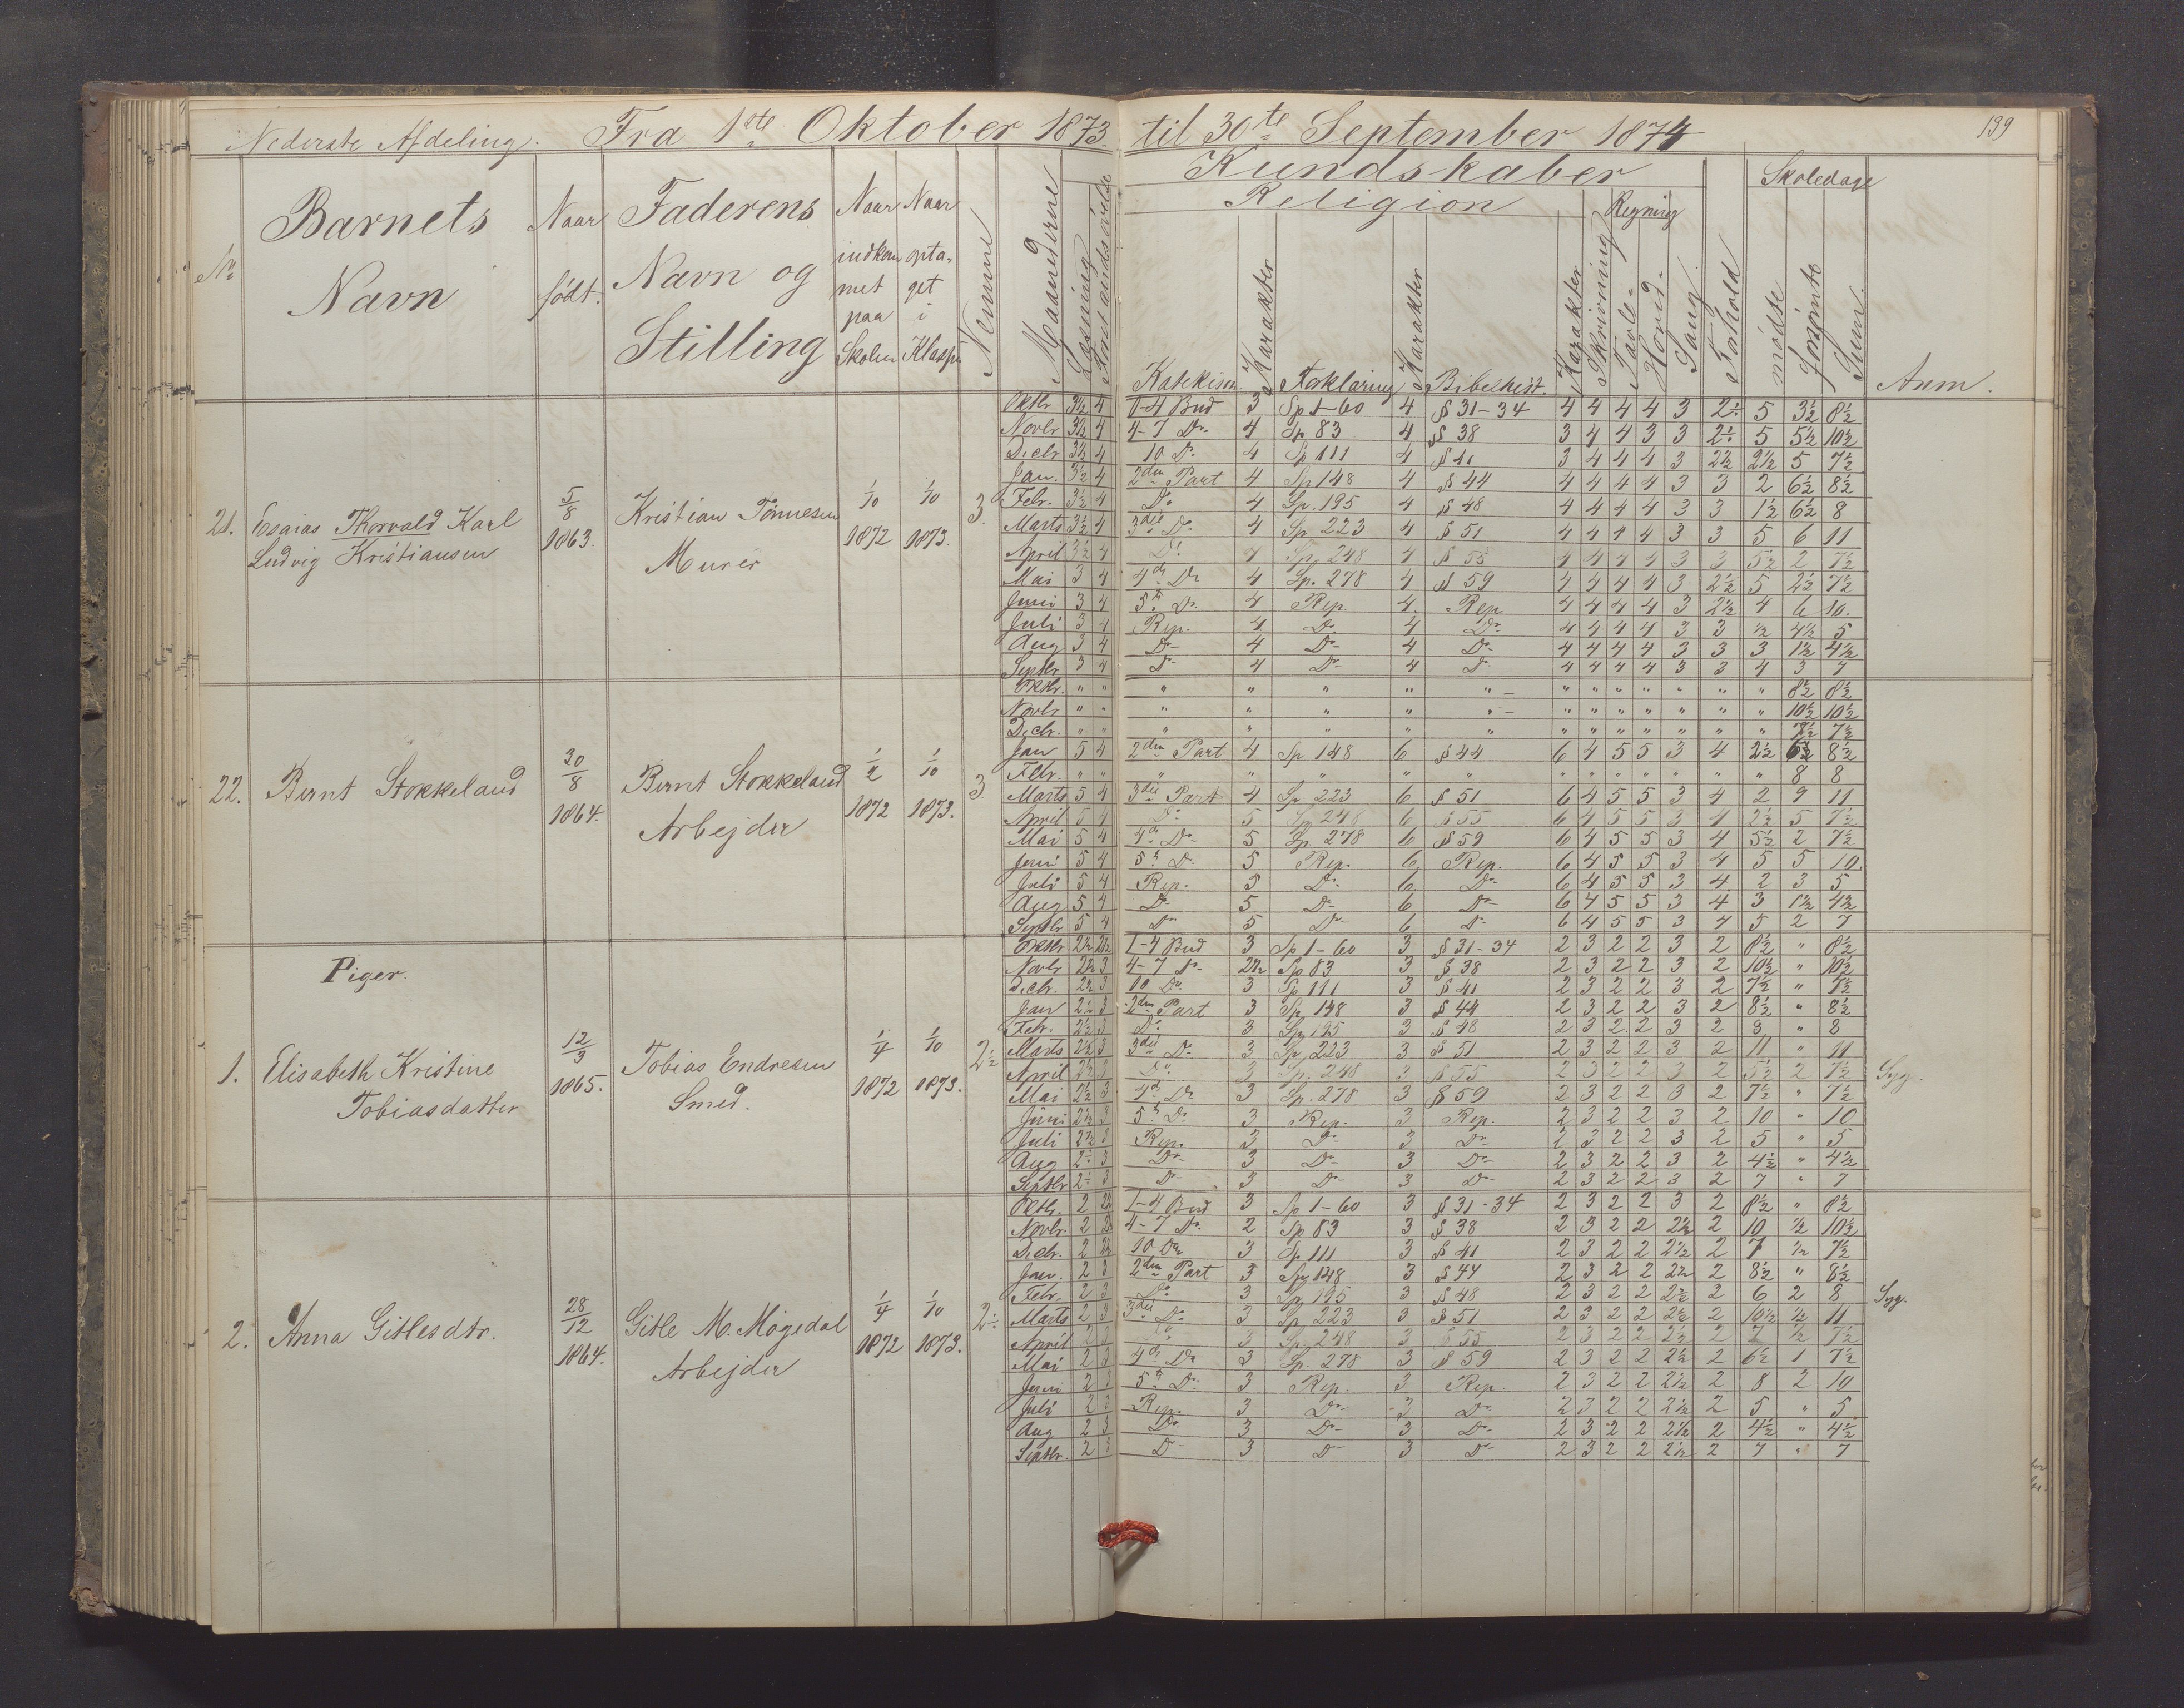 Nederste Afdeling. Fra 1ste Oktober 1873. til 30te September 1874 139
Kundskaber
Religion Regning Skoledage
No Barnets Navn Naar født. Faderens Navn og Stilling Naar indkommet paa Skolen Naar optaget i Klassen Nemme Maanederne Læsning Forstandsøvelse Katekism. Karakter Forklaring Karakter Bibelhist. Karakter Skrivning Tavle- Hovid- Sang. Forhold mødte forsømte Sum. Anm.
21. Esaias Thorvald Karl Ludvig Kristiansen 5/8 1863. Kristian Tönnesen Murer 1/10 1872 1/10 1873. 3.
Oktbr. 3½ 4 1-4 Bud 3 Sp 1-60 4 § 31-34 4 4 4 4 3 2½ 5 3½ 8½
Novbr 3½ 4 4-7 Do 4 Sp 83 4 § 38 3 4 4 3 3 2½ 5 5½ 10½
Decbr 3½ 4 10 Do 4 Sp 111 4 § 41 3 4 4 4 3 2½ 2½ 5 7½
Jan. 3½ 4 2den Part 4 Sp 148 4 § 44 4 4 4 4 3 3 2 6½ 8½
Febr. 3½ 4 Do 4 Sp. 195 4 § 48 4 4 4 4 3 3 1½ 6½ 8
Marts 3½ 4 3die Do 4 Sp 223 4 § 51 4 4 4 4 3 3 5 6 11
April 3½ 4 Do 4 Sp. 248 4 § 55 4 4 4 4 3 3 5½ 2 7½
Mai 3 4 4de Do 4 Sp. 278 4 § 59 4 4 4 4 3 2½ 5 2½ 7½
Juni 3 4 5te Do. 4 Rep. 4. Rep. 4 4 4 4 3 2½ 4 6 10.
Juli 3 4 Rep. 4 Do 4 Do 4 4 4 4 3 3 ½ 4½ 5
Aug 3 4 Do 4 Do 4 Do 4 4 4 4 3 3 3 1½ 4½
Septbr 3 4 Do 4 Do 4 Do 4 4 4 4 3 3 4 3 7
22. Bernt Stokkeland 30/8 1864. Bernt Stokkeland Arbejder 1/2 1872 1/10 1873. 3
Oktbr. " " " " " " " " " " " " " " 8½ 8½
Novbr " " " " " " " " " " " " " " 10½ 10½
Decbr. " " " " " " " " " " " " " " 7½ 7½
Jan 5 4 2den Part 4 Sp 148 6 § 44 6 4 5 5 3 4 2½ 6½ 8½
Febr. " " " " " " " " " " " " " " 8 8
Marts 5 4 3die Part 4 Sp 223 6 § 51 6 4 5 5 3 4 2 9 11
April 5 4 Do 5 Sp 248 6 § 55 6 4 5 5 3 4 2½ 5 7½
Mai 5 4 4de Do 5 Sp. 278 6 § 59 6 4 5 5 3 4 5½ 2 7½
Juni 5 4 5te Do. 5 Rep. 6 Rep. 6 4 5 5 3 4 5 5 10.
Juli 5 4 Rep. 5 Do. 6 Do 6 4 5 5 3 4. 2 3 5
Aug 5 4 Do 5 Do 6 Do 6 4 5 5 3 4 3 1½ 4½
Septbr. 5 4 Do 5 Do 6 Do 6 4 5 5 3 4 5 2 7
Piger.
1. Elisabeth Kristine Tobiasdatter 12/3 1865. Tobias Endresen Smed. 1/4 1872 1/10 1873. 2½
Oktbr 2½ 2½ 1-4 Bud 3 Sp 1-60 3 § 31-34 2 3 2 2 3 2 8½ " 8½
Novbr 2½ 3 4-7 Do 2½ Sp 83 3 § 38 2 3 2 2 3 2 10½ " 10½
Decbr. 2½ 3 10 Do 3 Sp 111 3 § 41 2 3 2 2 3 2 7½ " 7½
Jan 2½ 3 2den Part 3 Sp 148 3 § 44 2 3 2 2 3 2 8½ " 8½
Febr. 2½ 3 Do 3 Sp 195 3 § 48 2 3 2 2 3 2 8 " 8
Marts 2½ 3 3die Do 3 Sp 223 3 § 51 2 3 2 2 3 2 11 " 11
April 2½ 3 Do 3 Sp. 248 3 § 55 2 3 2 2 3 2 5½ 2 7½ Syg.
Mai 2½ 3 4de Do 3 Sp. 278 3 § 59 2 3 2 2 3 2 7½ " 7½
Juni 2½ 3 5te Do 3 Rep. 3 Rep. 2 3 2 2 3 2 10 " 10
Juli 2½ 3 Rep. 3 Do 3 Do 2 3 2 2 3 2 5 " 5
Aug 2½ 3 Do 3 Do 3 Do 2 3 2 2 3 2 4½ " 4½
Septbr 2½ 3 Do 3 Do 3 Do 2 3 2 2 3 2 7 " 7
2. Anna Gitlesdtr. 28/12 1864. Gitle M. Mögedal Arbejder 1/4 1872 1/10 1873. 2½
Oktbr. 2 2½ 1-4 Bud 3 Sp 1-60 3 § 31-34 2 3 2 2 3 2 8½ " 8½
Novbr. 2 2½ 4-7 Do 2 Sp 83 3 § 38 2 3 2 2 2½ 2 10 ½ 10½
Decbr. 2 2½ 10 Do 3 Sp 111 3 § 41 2 3 2 2 2½ 2 7 ½ 7½
Jan. 2 3 2den Part 3 Sp 148 3 § 44 2 3 2 2 2½ 2 8½ " 8½
Febr. 2 3 Do 3 Sp 195 3 § 48 2 3 2 2 2½ 2 6 2 8 Syg.
Marts 2 3 3die Do 3 Sp 223 3 § 51 2 3 2 2 2½ 2 10½ ½ 11
April 2 3 Do 3 Sp. 248 3 § 55 2 3 2 2 2½ 2 7 ½ 7½
Mai 2 3 4de Do 3 Sp. 278 3 § 59 2 3 2 2 2½ 2 6½ 1 7½
Juni 2 3 5te Do 3 Rep. 3 Rep. 2 3 2 2 2½ 2 8 2 10
Juli 2 3 Rep. 3 Do 3 Do 2 3 2 2 2½ 2 5 " 5
Aug 2 3 Do 3 Do 3 Do 2 3 2 2 2½ 2 4½ " 4½
Septbr. 2 3 Do 3 Do 3 Do 2 3 2 2 2½ 2 7 " 7